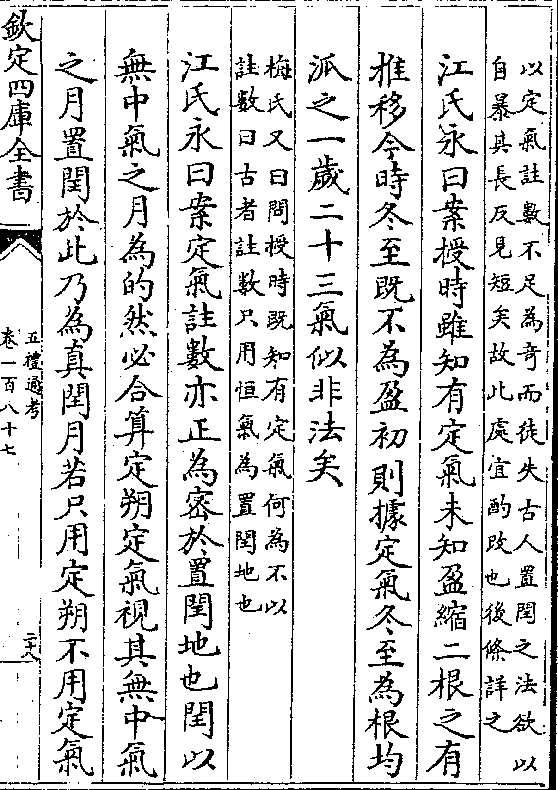 以定氣註數不足為竒而徒失古人置閏之法欲以
自暴其長反見短矣故此處宜酌改也後條詳之
江氏永曰案授時雖知有定氣未知盈縮二根之有
推移今時冬至既不為盈初則據定氣冬至為根均
派之一歲二十三氣似非法矣
梅氏又曰問授時既知有定氣何為不以
註數曰古者註數只用恒氣為置閏地也
江氏永曰案定氣註數亦正為密於置閏地也閏以
無中氣之月為的然必合算定朔定氣視其無中氣
之月置閏於此乃為真閏月若只用定朔不用定氣
欽定四庫全書
五禮通考
卷一百八十七
二十八